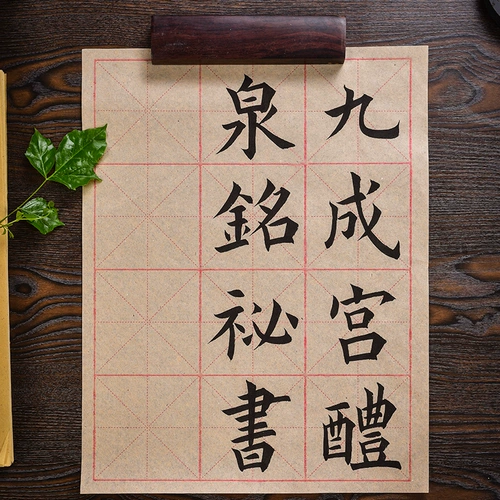 九成宮醴
泉銘祕書